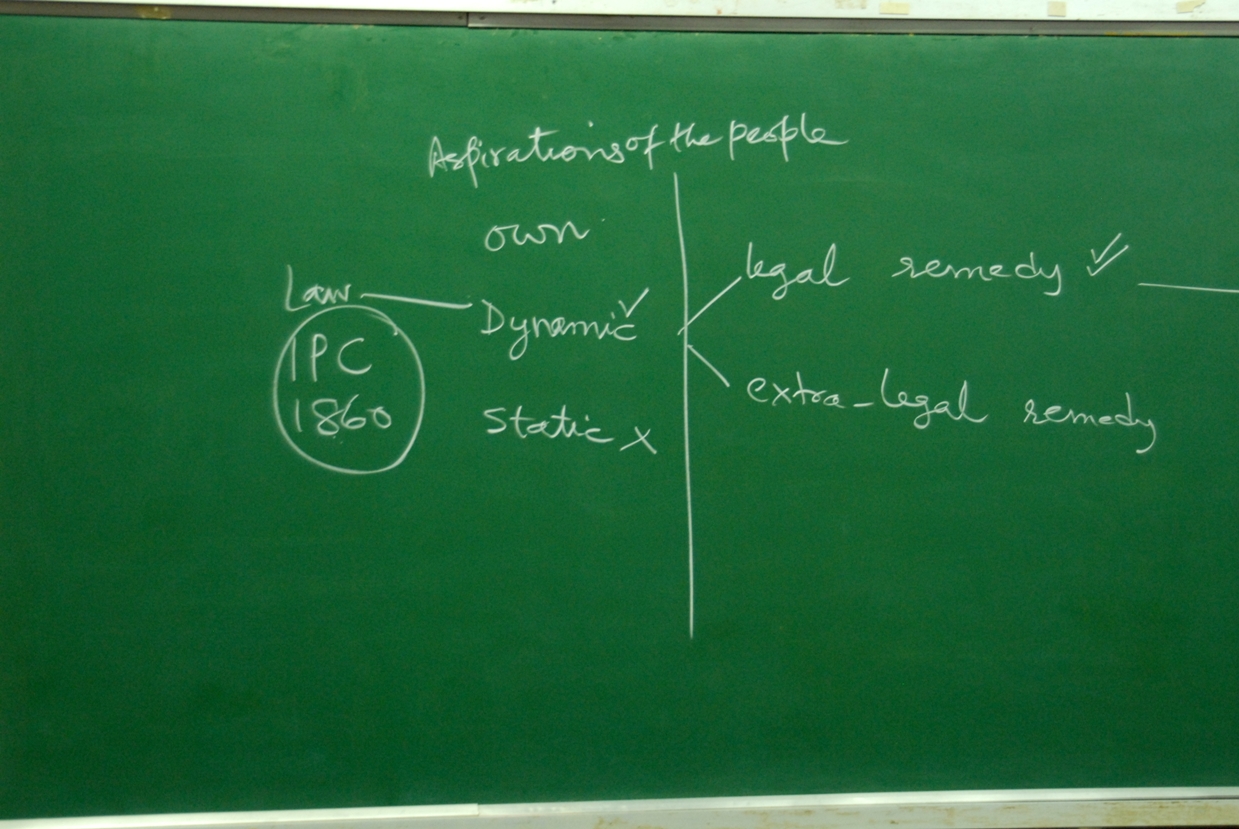 Aspirations of the people
own
Law
Dynamic ✓
IPC
1860
Static x
legal remedy ✓
extra-legal remedy